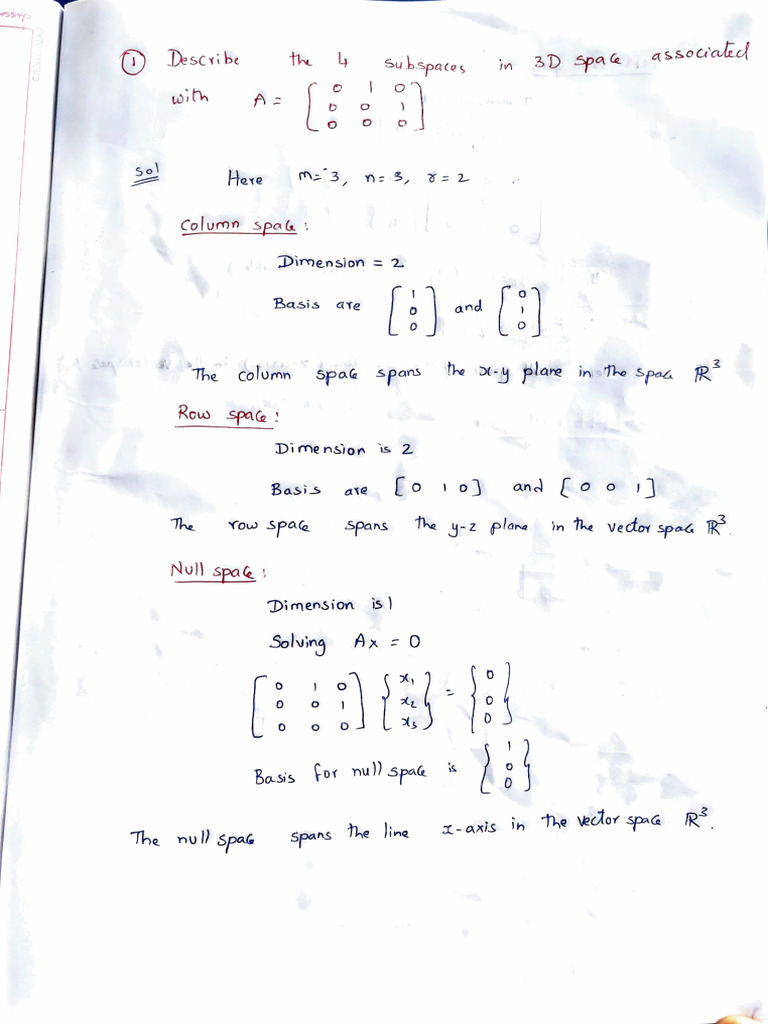 ① Describe the 4 subspaces in 3D space associated
with A = [ 0 1 0
0 0 1
0 0 0 ]
Sol Here m=3, n=3, r=2
Column space:
Dimension = 2
Basis are [ 1 0 0 ] and [ 0 1 0 ]
The column space spans the x-y plane in the space ℝ³
Row space:
Dimension is 2
Basis are [0 1 0] and [0 0 1]
The row space spans the y-z plane in the vector space ℝ³.
Null space:
Dimension is 1
Solving Ax = 0
[ 0 1 0 { x₁ = { 0
0 0 1 x₂ 0
0 0 0 ] x₃ } 0 }
Basis for null space is { 1 0 0 }
The null space spans the line x-axis in the vector space ℝ³.